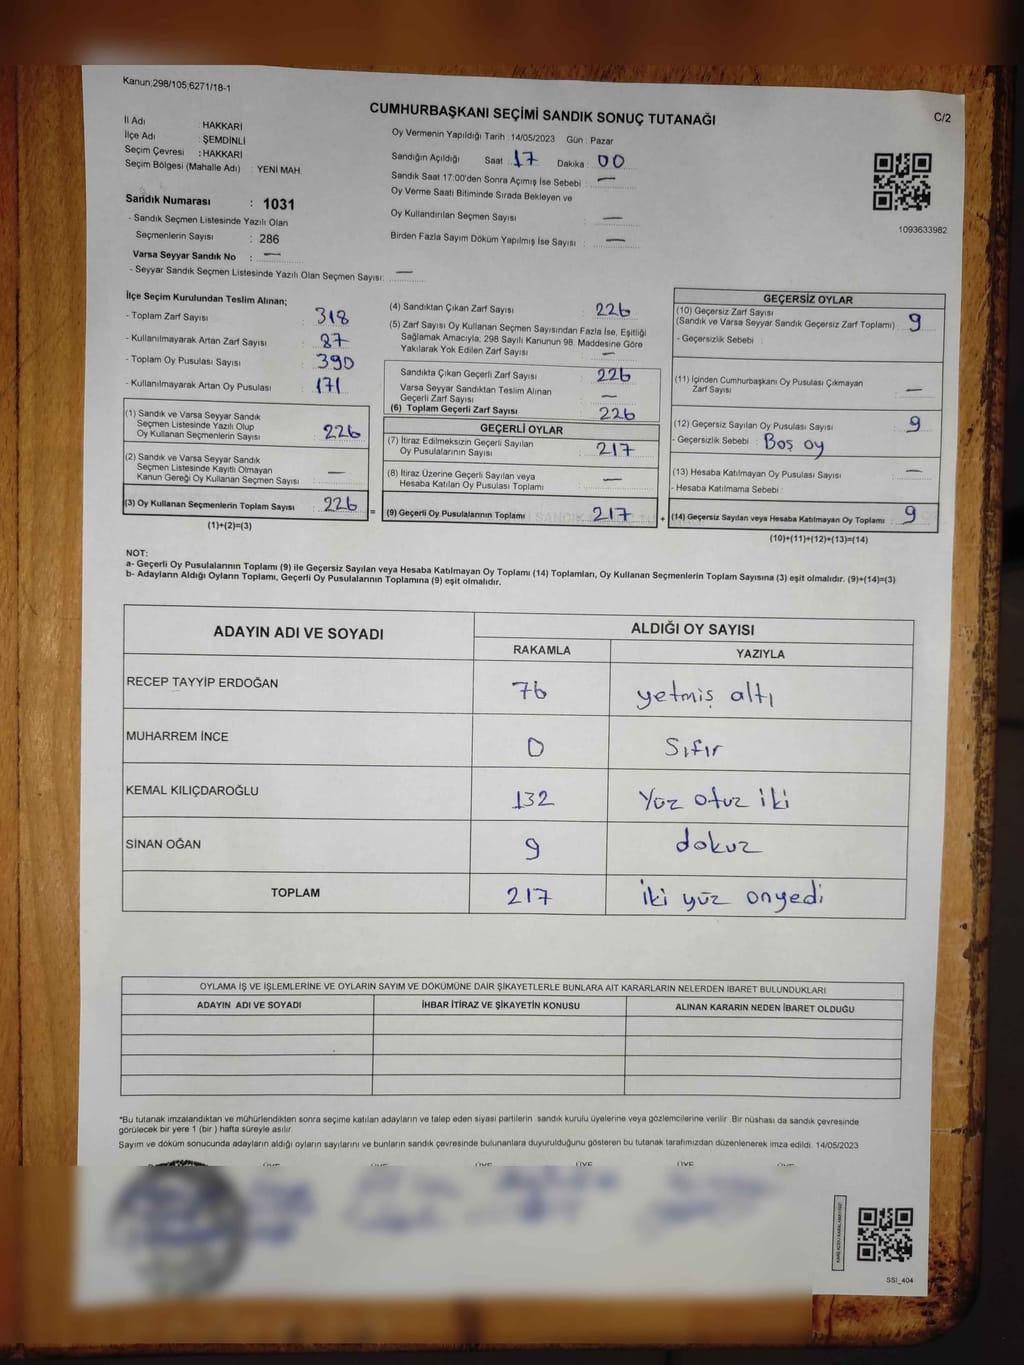 Kanun;298/105,6271/18-1
C/2
CUMHURBAŞKANI SEÇİMİ SANDIK SONUÇ TUTANAĞI
İl Adı : HAKKARİ
İlçe Adı : ŞEMDİNLİ
Seçim Çevresi : HAKKARİ
Seçim Bölgesi (Mahalle Adı) : YENİ MAH.
Sandık Numarası : 1031
- Sandık Seçmen Listesinde Yazılı Olan
Seçmenlerin Sayısı : 286
Varsa Seyyar Sandık No : —
- Seyyar Sandık Seçmen Listesinde Yazılı Olan Seçmen Sayısı: —
Oy Vermenin Yapıldığı Tarih : 14/05/2023 Gün : Pazar
Sandığın Açıldığı Saat : 17 Dakika : 00
Sandık Saat 17:00'den Sonra Açımış İse Sebebi : —
Oy Verme Saati Bitiminde Sırada Bekleyen ve
Oy Kullandırılan Seçmen Sayısı : —
Birden Fazla Sayım Döküm Yapılmış İse Sayısı : —
1093633982
İlçe Seçim Kurulundan Teslim Alınan;
- Toplam Zarf Sayısı : 318
- Kullanılmayarak Artan Zarf Sayısı : 87
- Toplam Oy Pusulası Sayısı : 390
- Kullanılmayarak Artan Oy Pusulası : 171
(1) Sandık ve Varsa Seyyar Sandık
Seçmen Listesinde Yazılı Olup
Oy Kullanan Seçmenlerin Sayısı : 226
(2) Sandık ve Varsa Seyyar Sandık
Seçmen Listesinde Kayıtlı Olmayan
Kanun Gereği Oy Kullanan Seçmen Sayısı : —
(3) Oy Kullanan Seçmenlerin Toplam Sayısı : 226 =
(1)+(2)=(3)
(4) Sandıktan Çıkan Zarf Sayısı : 226
(5) Zarf Sayısı Oy Kullanan Seçmen Sayısından Fazla İse, Eşitliği
Sağlamak Amacıyla; 298 Sayılı Kanunun 98. Maddesine Göre
Yakılarak Yok Edilen Zarf Sayısı : —
Sandıkta Çıkan Geçerli Zarf Sayısı : 226
Varsa Seyyar Sandıktan Teslim Alınan
Geçerli Zarf Sayısı : —
(6) Toplam Geçerli Zarf Sayısı : 226
GEÇERLİ OYLAR
(7) İtiraz Edilmeksizin Geçerli Sayılan
Oy Pusulalarının Sayısı : 217
(8) İtiraz Üzerine Geçerli Sayılan veya
Hesaba Katılan Oy Pusulası Toplamı : —
(9) Geçerli Oy Pusulalarının Toplamı : 217 +
GEÇERSİZ OYLAR
(10) Geçersiz Zarf Sayısı
(Sandık ve Varsa Seyyar Sandık Geçersiz Zarf Toplamı) : 9
- Geçersizlik Sebebi :
(11) İçinden Cumhurbaşkanı Oy Pusulası Çıkmayan
Zarf Sayısı : —
(12) Geçersiz Sayılan Oy Pusulası Sayısı : 9
- Geçersizlik Sebebi : Boş oy
(13) Hesaba Katılmayan Oy Pusulası Sayısı : —
- Hesaba Katılmama Sebebi :
(14) Geçersiz Sayılan veya Hesaba Katılmayan Oy Toplamı : 9
(10)+(11)+(12)+(13)=(14)
NOT:
a- Geçerli Oy Pusulalarının Toplamı (9) ile Geçersiz Sayılan veya Hesaba Katılmayan Oy Toplamı (14) Toplamları, Oy Kullanan Seçmenlerin Toplam Sayısına (3) eşit olmalıdır. (9)+(14)=(3)
b- Adayların Aldığı Oyların Toplamı, Geçerli Oy Pusulalarının Toplamına (9) eşit olmalıdır.
ADAYIN ADI VE SOYADI
ALDIĞI OY SAYISI
RAKAMLA YAZIYLA
RECEP TAYYİP ERDOĞAN 76 yetmiş altı
MUHARREM İNCE 0 Sıfır
KEMAL KILIÇDAROĞLU 132 Yüz otuz iki
SİNAN OĞAN 9 dokuz
TOPLAM 217 iki yüz onyedi
OYLAMA İŞ VE İŞLEMLERİNE VE OYLARIN SAYIM VE DÖKÜMÜNE DAİR ŞİKAYETLERLE BUNLARA AİT KARARLARIN NELERDEN İBARET BULUNDUKLARI
ADAYIN ADI VE SOYADI İHBAR İTİRAZ VE ŞİKAYETİN KONUSU ALINAN KARARIN NEDEN İBARET OLDUĞU
*Bu tutanak imzalandıktan ve mühürlendikten sonra seçime katılan adayların ve talep eden siyasi partilerin sandık kurulu üyelerine veya gözlemcilerine verilir. Bir nüshası da sandık çevresinde
görülecek bir yere 1 (bir ) hafta süreyle asılır.
Sayım ve döküm sonucunda adayların aldığı oyların sayılarını ve bunların sandık çevresinde bulunanlara duyurulduğunu gösteren bu tutanak tarafımızdan düzenlenerek imza edildi. 14/05/2023
SSI_404